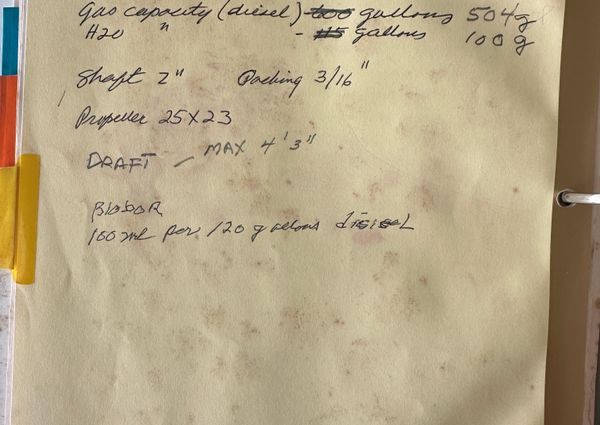 Gas capacity (diesel) - 600 gallons 504g
H20 " - 115 gallons 100g
Shaft 2" Packing 3/16"
Propeller 25X23
DRAFT - MAX 4' 3"
BIOBOR
100 ml per 120 gallons diesel